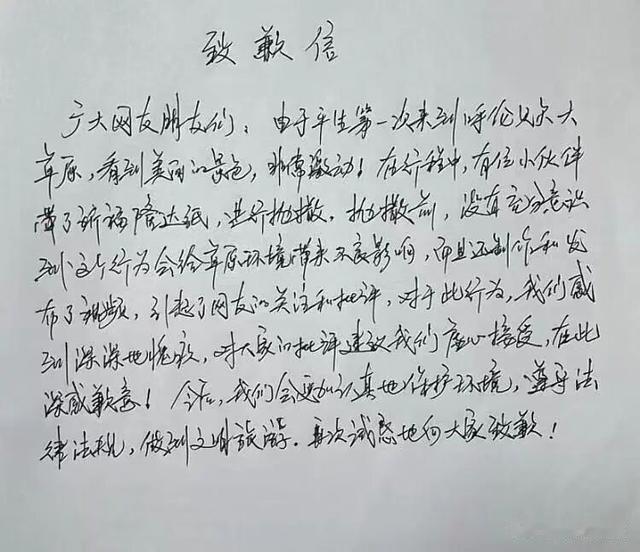 致歉信
广大网友朋友们：由于平生第一次来到呼伦贝尔大
草原，看到美丽的景色，非常激动！在行程中，有位小伙伴
带了祈福隆达纸，进行抛撒。抛撒前，没有充分意识
到这个行为会给草原环境带来不良影响，而且还制作和发
布了视频，引起了网友的关注和批评，对于此行为，我们感
到深深地愧疚，对大家的批评建议我们虚心接受，在此
深感歉意！今后，我们会更加认真地保护环境，遵守法
律法规，做到文明旅游。再次诚恳地向大家致歉！